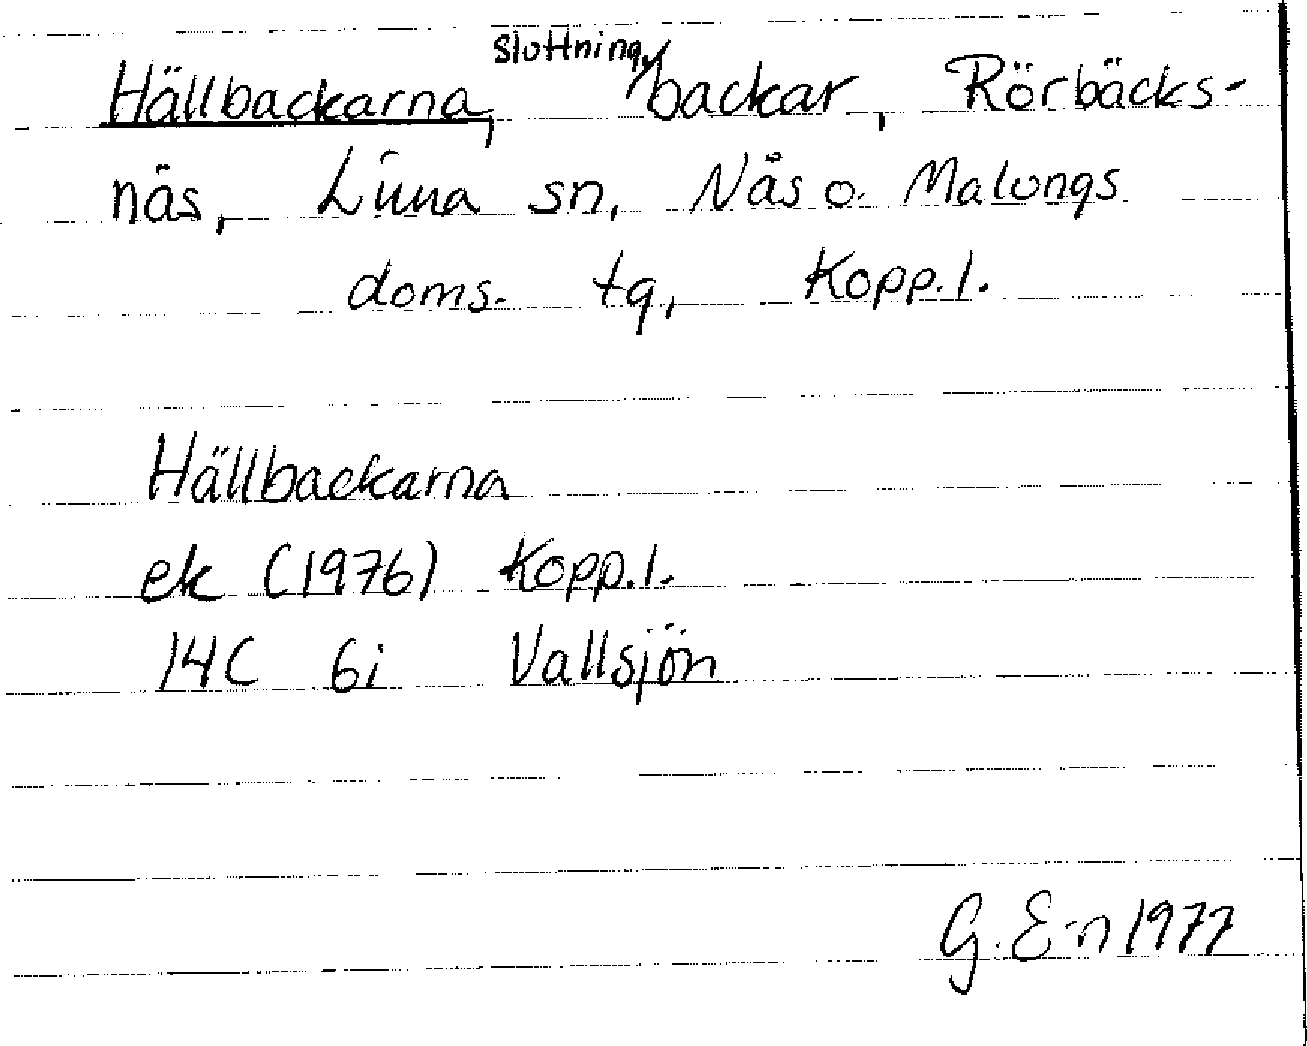 Hällbackarna, sluttning, backar, Rörbäcks-
näs, Lima sn, Nås o. Malungs
doms. tg, Kopp. l.
Hällbackarna
ek (1976) Kopp. l.
14C 6i Vallsjön
G. E-n 1977